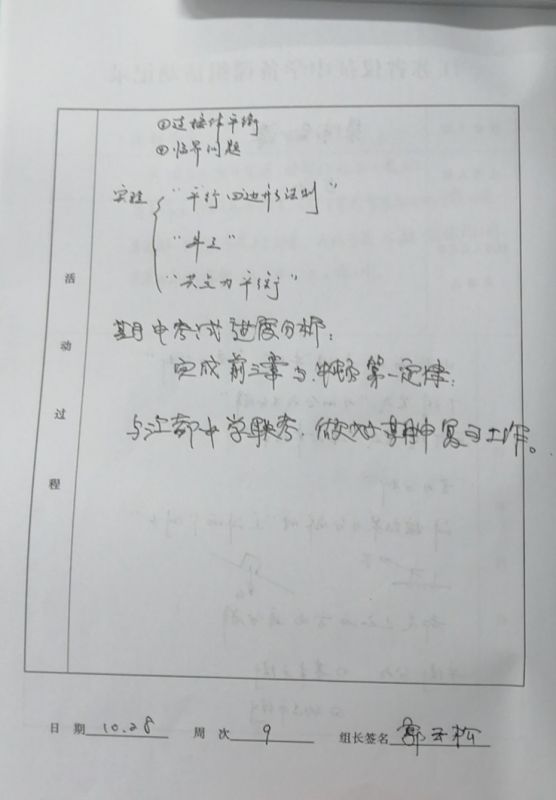 ①连接体平衡
②临界问题
实验 "平行四边形法则"
"斗立"
"共点力平衡"
期中考试进度分析：
完成前三章与牛顿第一定律；
与江都中学联考，做好期中复习工作。
活动过程
日 期 10.28 周 次 9 组长签名